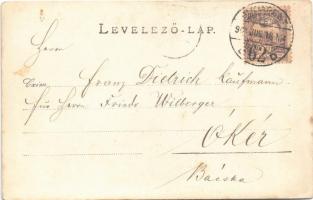 LEVELEZŐ-LAP.
Herrn
Franz Dietrich Kaufmann
für Herrn Frieds Wilberger
Ókér
Bácska